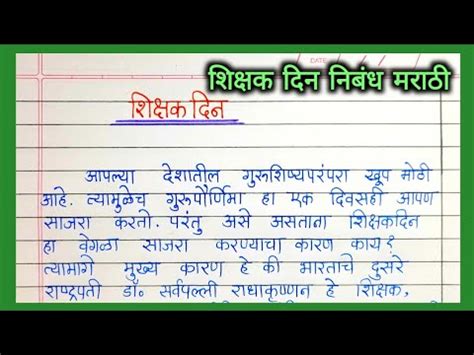 DATE
शिक्षक दिन निबंध मराठी
शिक्षक दिन
आपल्या देशातील गुरुशिष्यपरंपरा खूप मोठी
आहे. त्यामुळेच गुरुपौर्णिमा हा एक दिवसही आपण
साजरा करतो. परंतु असे असताना शिक्षकदिन
हा वेगळा साजरा करण्याचा कारण काय?
त्यामागे मुख्य कारण हे की भारताचे दुसरे
राष्ट्रपती डॉ. सर्वपल्ली राधाकृष्णन हे शिक्षक,